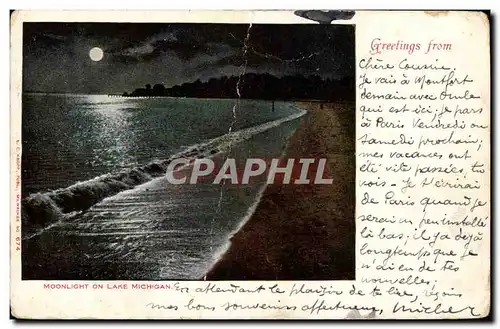 Greetings from
Chère Cousine,
Je vais à Montfort
demain avec Oncle
qui est ici; je pars
à Paris Vendredi ou
Samedi prochain;
mes vacances ont
été vite passées, tu
vois. Je t'écrirai
de Paris quand je
serai un peu installé
là bas; il y a déjà
longtemps que je
n'ai eu de tes
nouvelles,
En attendant le plaisir de te lire, reçois
mes bons souvenirs affectueux, Michel
MOONLIGHT ON LAKE MICHIGAN.
CPARAMA
MILWAUKEE NO. 674